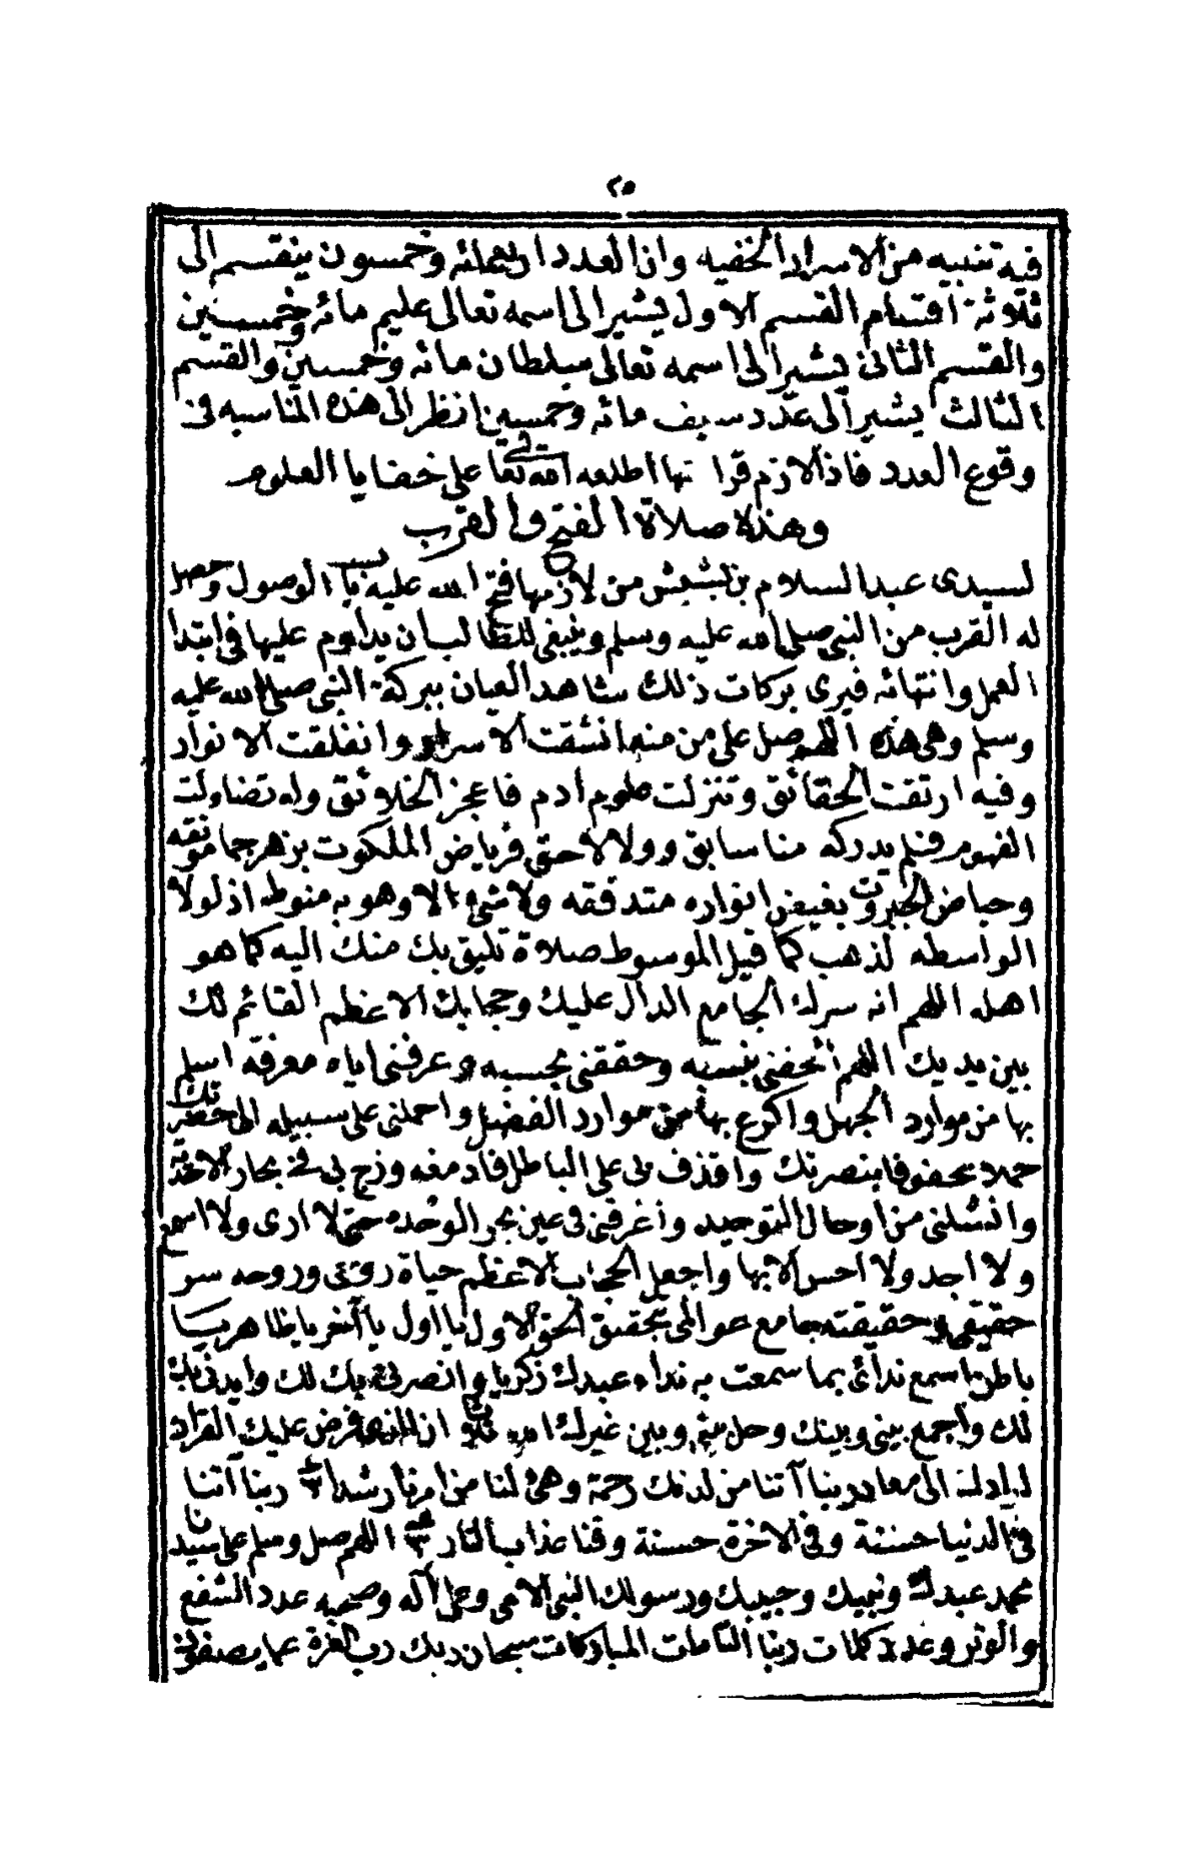 ٢٥
فيه تنبيه من الاسرار الخفيه وان العدد اربعمائه وخمسون ينقسم الى
ثلاثة اقسام القسم الاول يشير الى اسمه تعالى عليم مائه وخمسين
والقسم الثانى يشير الى اسمه تعالى سلطان مائه وخمسين والقسم
الثالث يشير الى عدد سيف مائه وخمسين انظر الى هذه المناسبه فى
وقوع العدد فاذا لازم قرا تها اطلعه الله تعالى على خفايا العلوم
وهذه صلاة الفتح والقرب
لسيدى عبد السلام بن بشيش من لازمها فتح الله عليه باب الوصول وحصل
له القرب من النبى صلى الله عليه وسلم وينبغى للطالب ان يداوم عليها فى ابتدا
العمل وانتهائه فيرى بركات ذلك شاهد العيان ببركة النبى صلى الله عليه
وسلم وهى هذه اللهم صل على من منه انشقت الاسرار وانفلقت الانوار
وفيه ارتقت الحقائق وتنزلت علوم ادم فاعجز الخلائق وله تضاءلت
الفهوم فلم يدركه منا سابق ولا لاحق فرياض الملكوت بزهر جماله مونقه
وحياض الجبروت بفيض انواره متدفقه ولا شئ الا وهو به منوط اذ لولا
الواسطه لذهب كما قيل الموسوط صلاة تليق بك منك اليه كما هو
اهله اللهم انه سرك الجامع الدال عليك وحجابك الاعظم القائم لك
بين يديك اللهم الحقنى بنسبه وحققنى بحسبه وعرفنى اياه معرفة اسلم
بها من موارد الجهل واكرع بها من موارد الفضل واحملنى على سبيله الى حضرتك
حملا محفوفا بنصرتك واقذف بى على الباطل فادمغه وزج بى فى بحار الاحدية
وانشلنى من اوحال التوحيد واغرقنى فى عين بحر الوحده حتى لا ارى ولا اسمع
ولا اجد ولا احس الا بها واجعل الحجاب الاعظم حياة روحى وروحه سر
حقيقتى وحقيقته جامع عوالمى بتحقيق الحق الاول يا اول يا آخر يا ظاهر يا
باطن اسمع ندائى بما سمعت به نداء عبدك زكريا وانصرنى بك لك وايدنى بك
لك واجمع بينى وبينك وحل بينى وبين غيرك الله ثلاثا ان الذى فرض عليك القران
لرادك الى معاد ربنا آتنا من لدنك رحمة وهئ لنا من امرنا رشدا ٣ ربنا آتنا
فى الدنيا حسنة وفى الاخرة حسنة وقنا عذاب النار ٣ اللهم صل وسلم على سيدنا
محمد عبدك ونبيك وحبيبك ورسولك النبى الامى وعلى آله وصحبه عدد الشفع
والوتر وعدد كلمات ربنا التامات المباركات سبحان ربك رب العزة عما يصفون